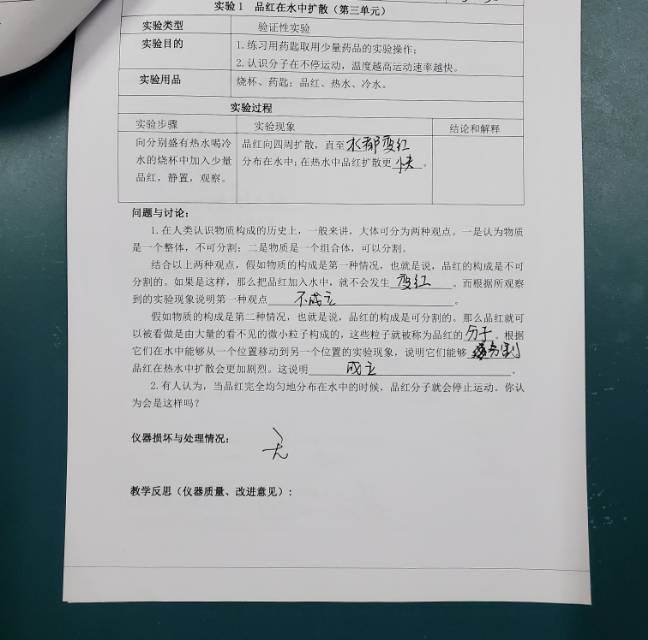 实验 1 品红在水中扩散（第三单元）
实验类型 验证性实验
实验目的 1.练习用药匙取用少量药品的实验操作；
2.认识分子在不停运动，温度越高运动速率越快。
实验用品 烧杯、药匙；品红、热水、冷水。
实验过程
实验步骤 实验现象 结论和解释
向分别盛有热水喝冷 品红向四周扩散，直至水都变红
水的烧杯中加入少量 分布在水中；在热水中品红扩散更快。
品红，静置，观察。
问题与讨论：
1.在人类认识物质构成的历史上，一般来讲，大体可分为两种观点。一是认为物质
是一个整体，不可分割；二是物质是一个组合体，可以分割。
结合以上两种观点，假如物质的构成是第一种情况，也就是说，品红的构成是不可
分割的。如果是这样，那么把品红加入水中，就不会发生变红。而根据所观察
到的实验现象说明第一种观点不成立。
假如物质的构成是第二种情况，也就是说，品红的构成是可分割的。那么品红就可
以被看做是由大量的看不见的微小粒子构成的，这些粒子就被称为品红的分子。根据
它们在水中能够从一个位置移动到另一个位置的实验现象，说明它们能够分割
品红在热水中扩散会更加剧烈。这说明成立。
2.有人认为，当品红完全均匀地分布在水中的时候，品红分子就会停止运动。你认
为会是这样吗？
仪器损坏与处理情况：
无
教学反思（仪器质量、改进意见）：